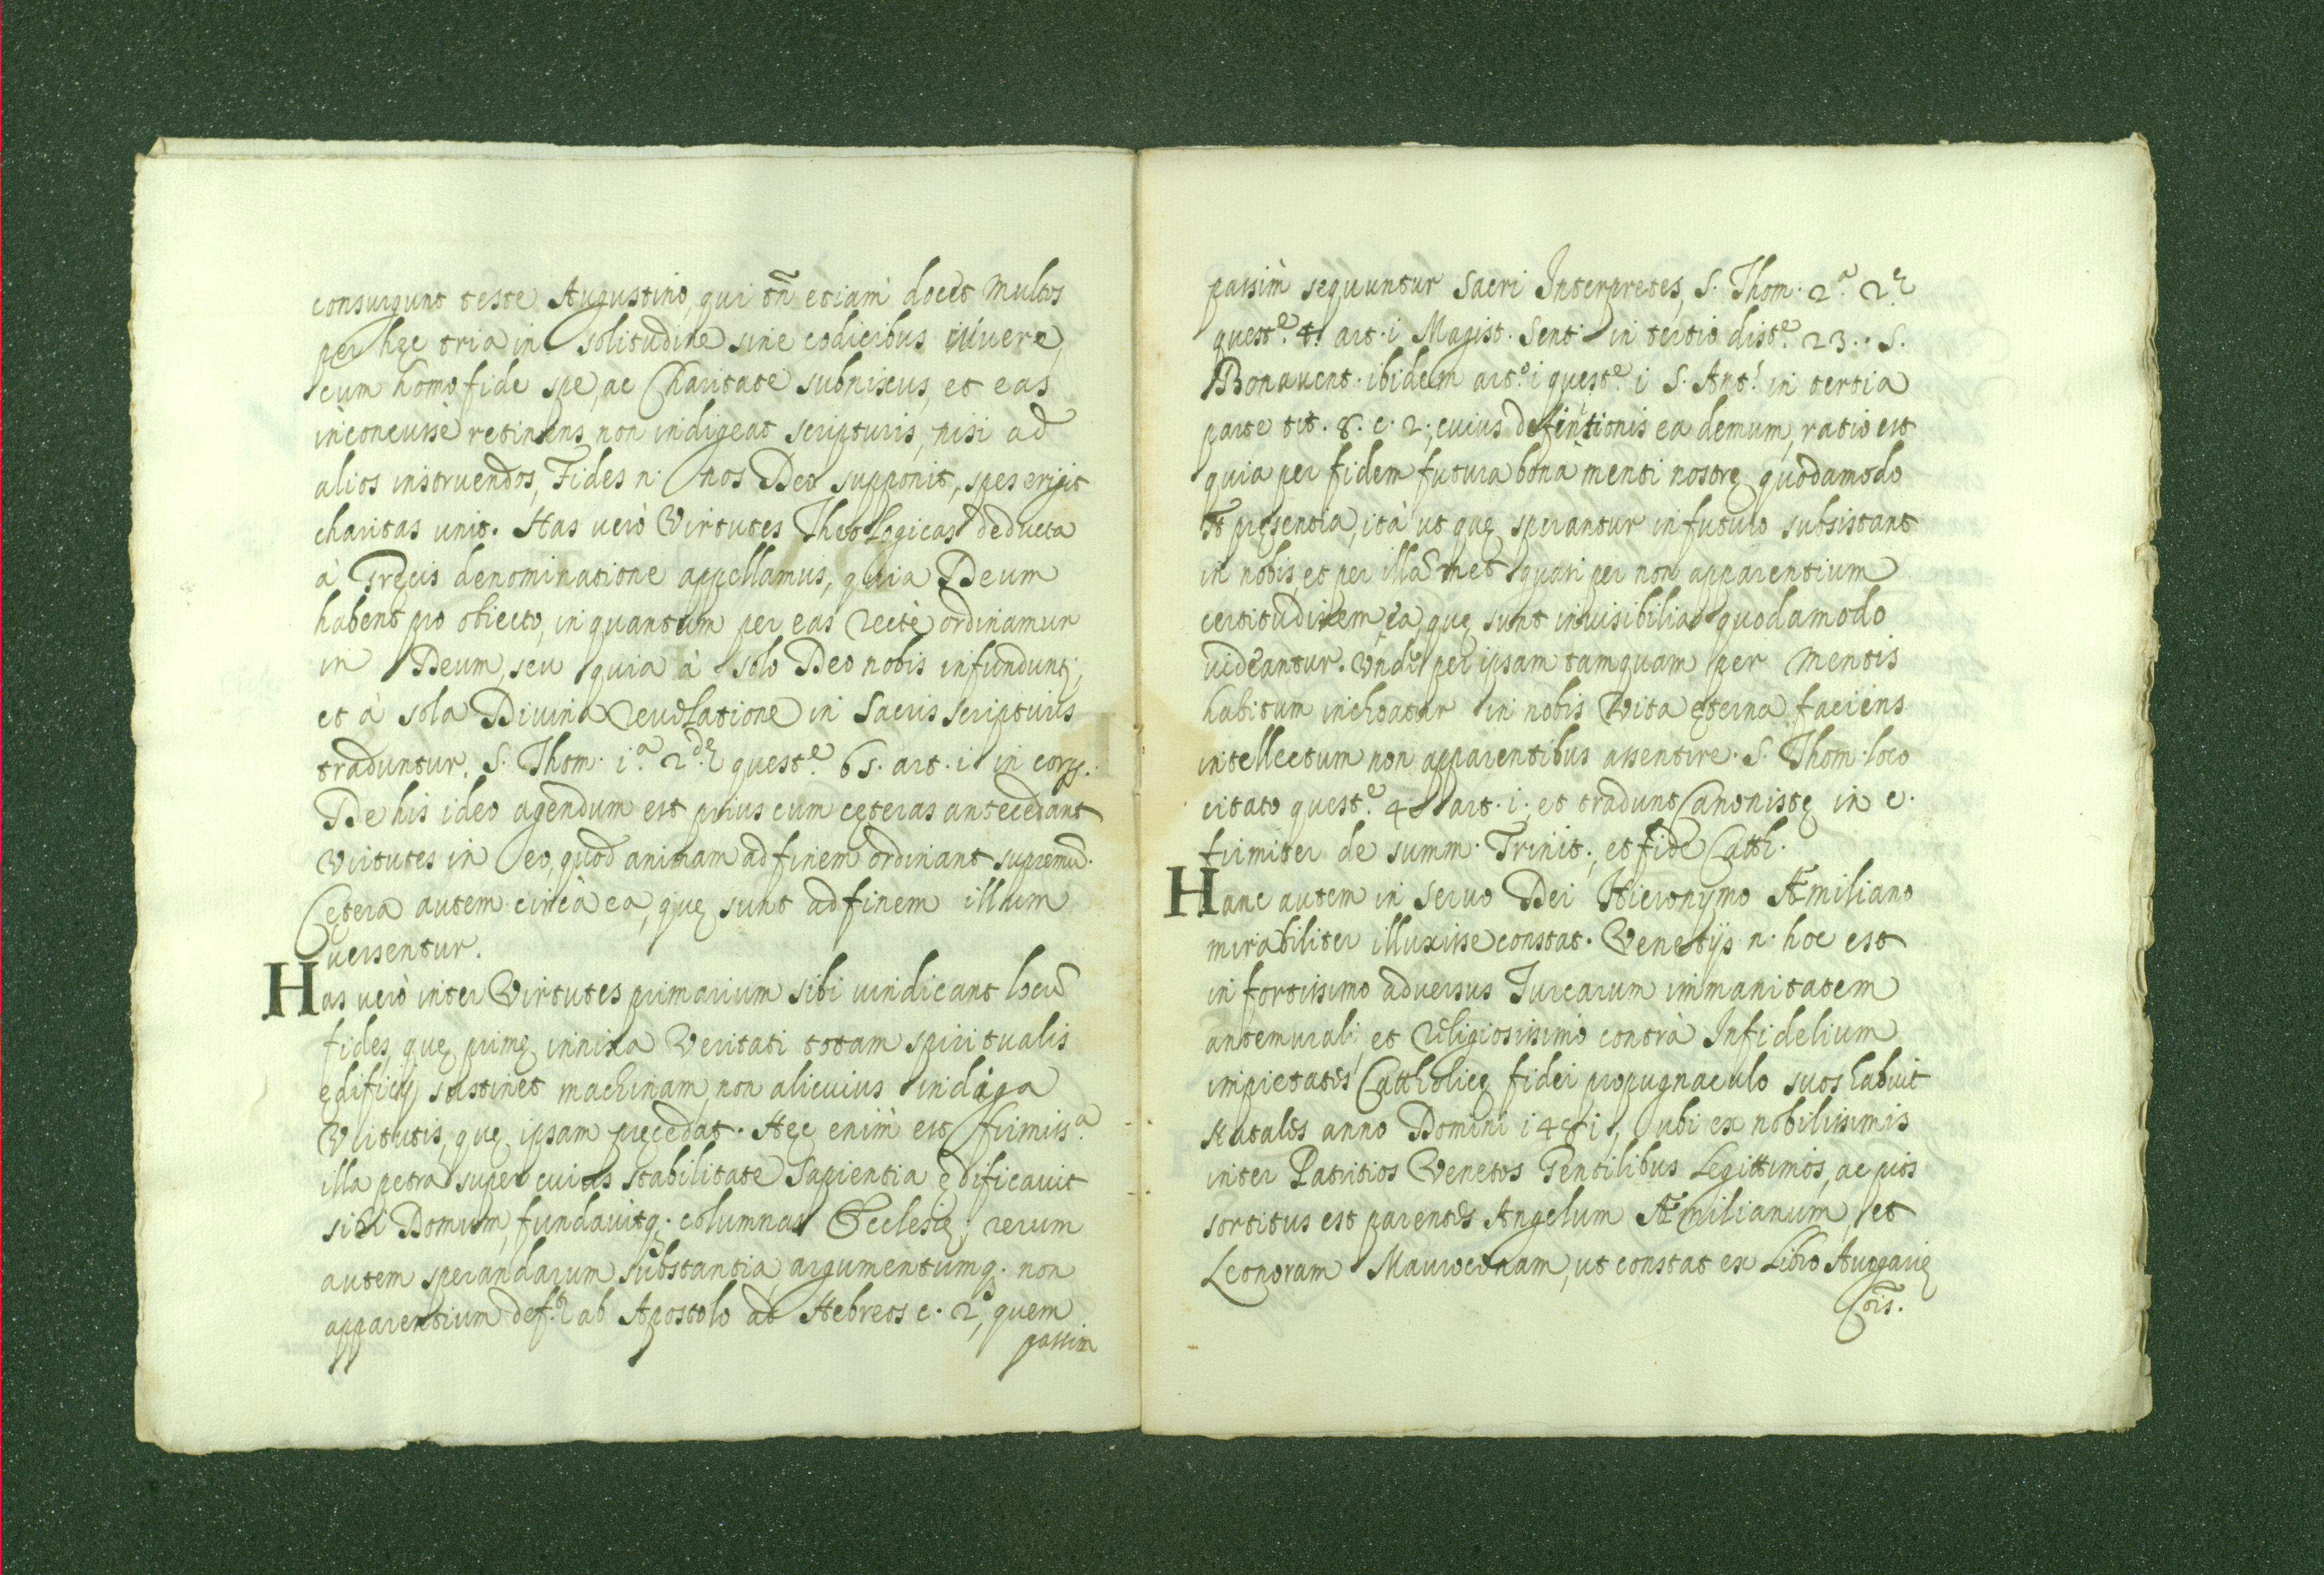 consurgunt teste Augustino, qui tñ etiam docet multos
per hęc tria in solitudine sine codicibus vivere
cum homo fide spe, ac Charitate subnixus, et eas
inconcusse retinens, non indigeat scripturis, nisi ad
alios instruendos, Fides n. nos Deo supponit, spes erigit
charitas unit. Has verò Virtutes Theologicas deducta
à Gręcis denominatione appellamus, quia Deum
habent pro obiecto, in quantum per eas rectè ordinamur
in Deum, seu quia à solo Deo nobis infundunt;
et à sola Divina revelatione in Sacris scripturis
traduntur. S. Thom. i.ª 2.dę quest.e 6s. art. i. in corp.
De his ideo agendum est prius cum cęteras antecedant
virtutes in eo, quod animam ad finem ordinant supremũ.
Cętera autem circà ea, quę sunt ad finem illum
versentur.
Has verò inter Virtutes primarium sibi vindicant locũ
fides, quę primę innixa Veritati totam spiritualis
ędificij sustinet machinam, non alicuius indiga
Virtutis, quę ipsam pręcedat. Hęc enim est firmiss.ª
illa petra super cuius stabilitate Sapientia ędificavit
sibi Domum, fundavitq. columnas Ecclesię; rerum
autem sperandarum substantia argumentumq. non
apparentium def.r ab Apostolo ad Hebreos c. 2, quem
passim
passim sequuntur Sacri Interpretes, S. Thom. 2.ª 2.ę
quest.e 4. art. i Magist. Sent. in tertio dist.e 23. S.
Bonavent. ibidem art.o i quest.e i S. Ant. in tertia
parte tit. 8. c. 2, cuius definitionis ea demum, ratio est
quia per fidem futura bona menti nostrę quodamodo
st pręsentia, ità ut quę sperantur in futuro subsistant
in nobis, et per illa met quasi per non apparentium
certitudinem ea, quę sunt invisibilia quodamodo
videantur. Undè per ipsam tamquam per mentis
habitum inchoatur in nobis Vita ęterna faciens
intellectum non apparentibus assentire. S. Thom. loco
citato quest.e 4 art. i; et tradunt Canonistę in c.
firmiter de summ. Trinit., et fide Catth.
Hanc autem in servo Dei Hieronymo Æmiliano
mirabiliter illuxisse constat. Venetijs n. hoc est
in fortissimo adversus Turcarum immanitatem
antemurali, et religiosissimo contrà Infidelium
impietates Cattholicę fidei propugnaculo suos habuit
Natales anno Domini i48i, ubi ex nobilissimis
inter Patritios Venetos Gentilibus Legittimos, ac pios
sortitus est parentes Angelum Æmilianum, et
Leonoram Maurocenam, ut constat ex Libro Auogarię
Cõis.